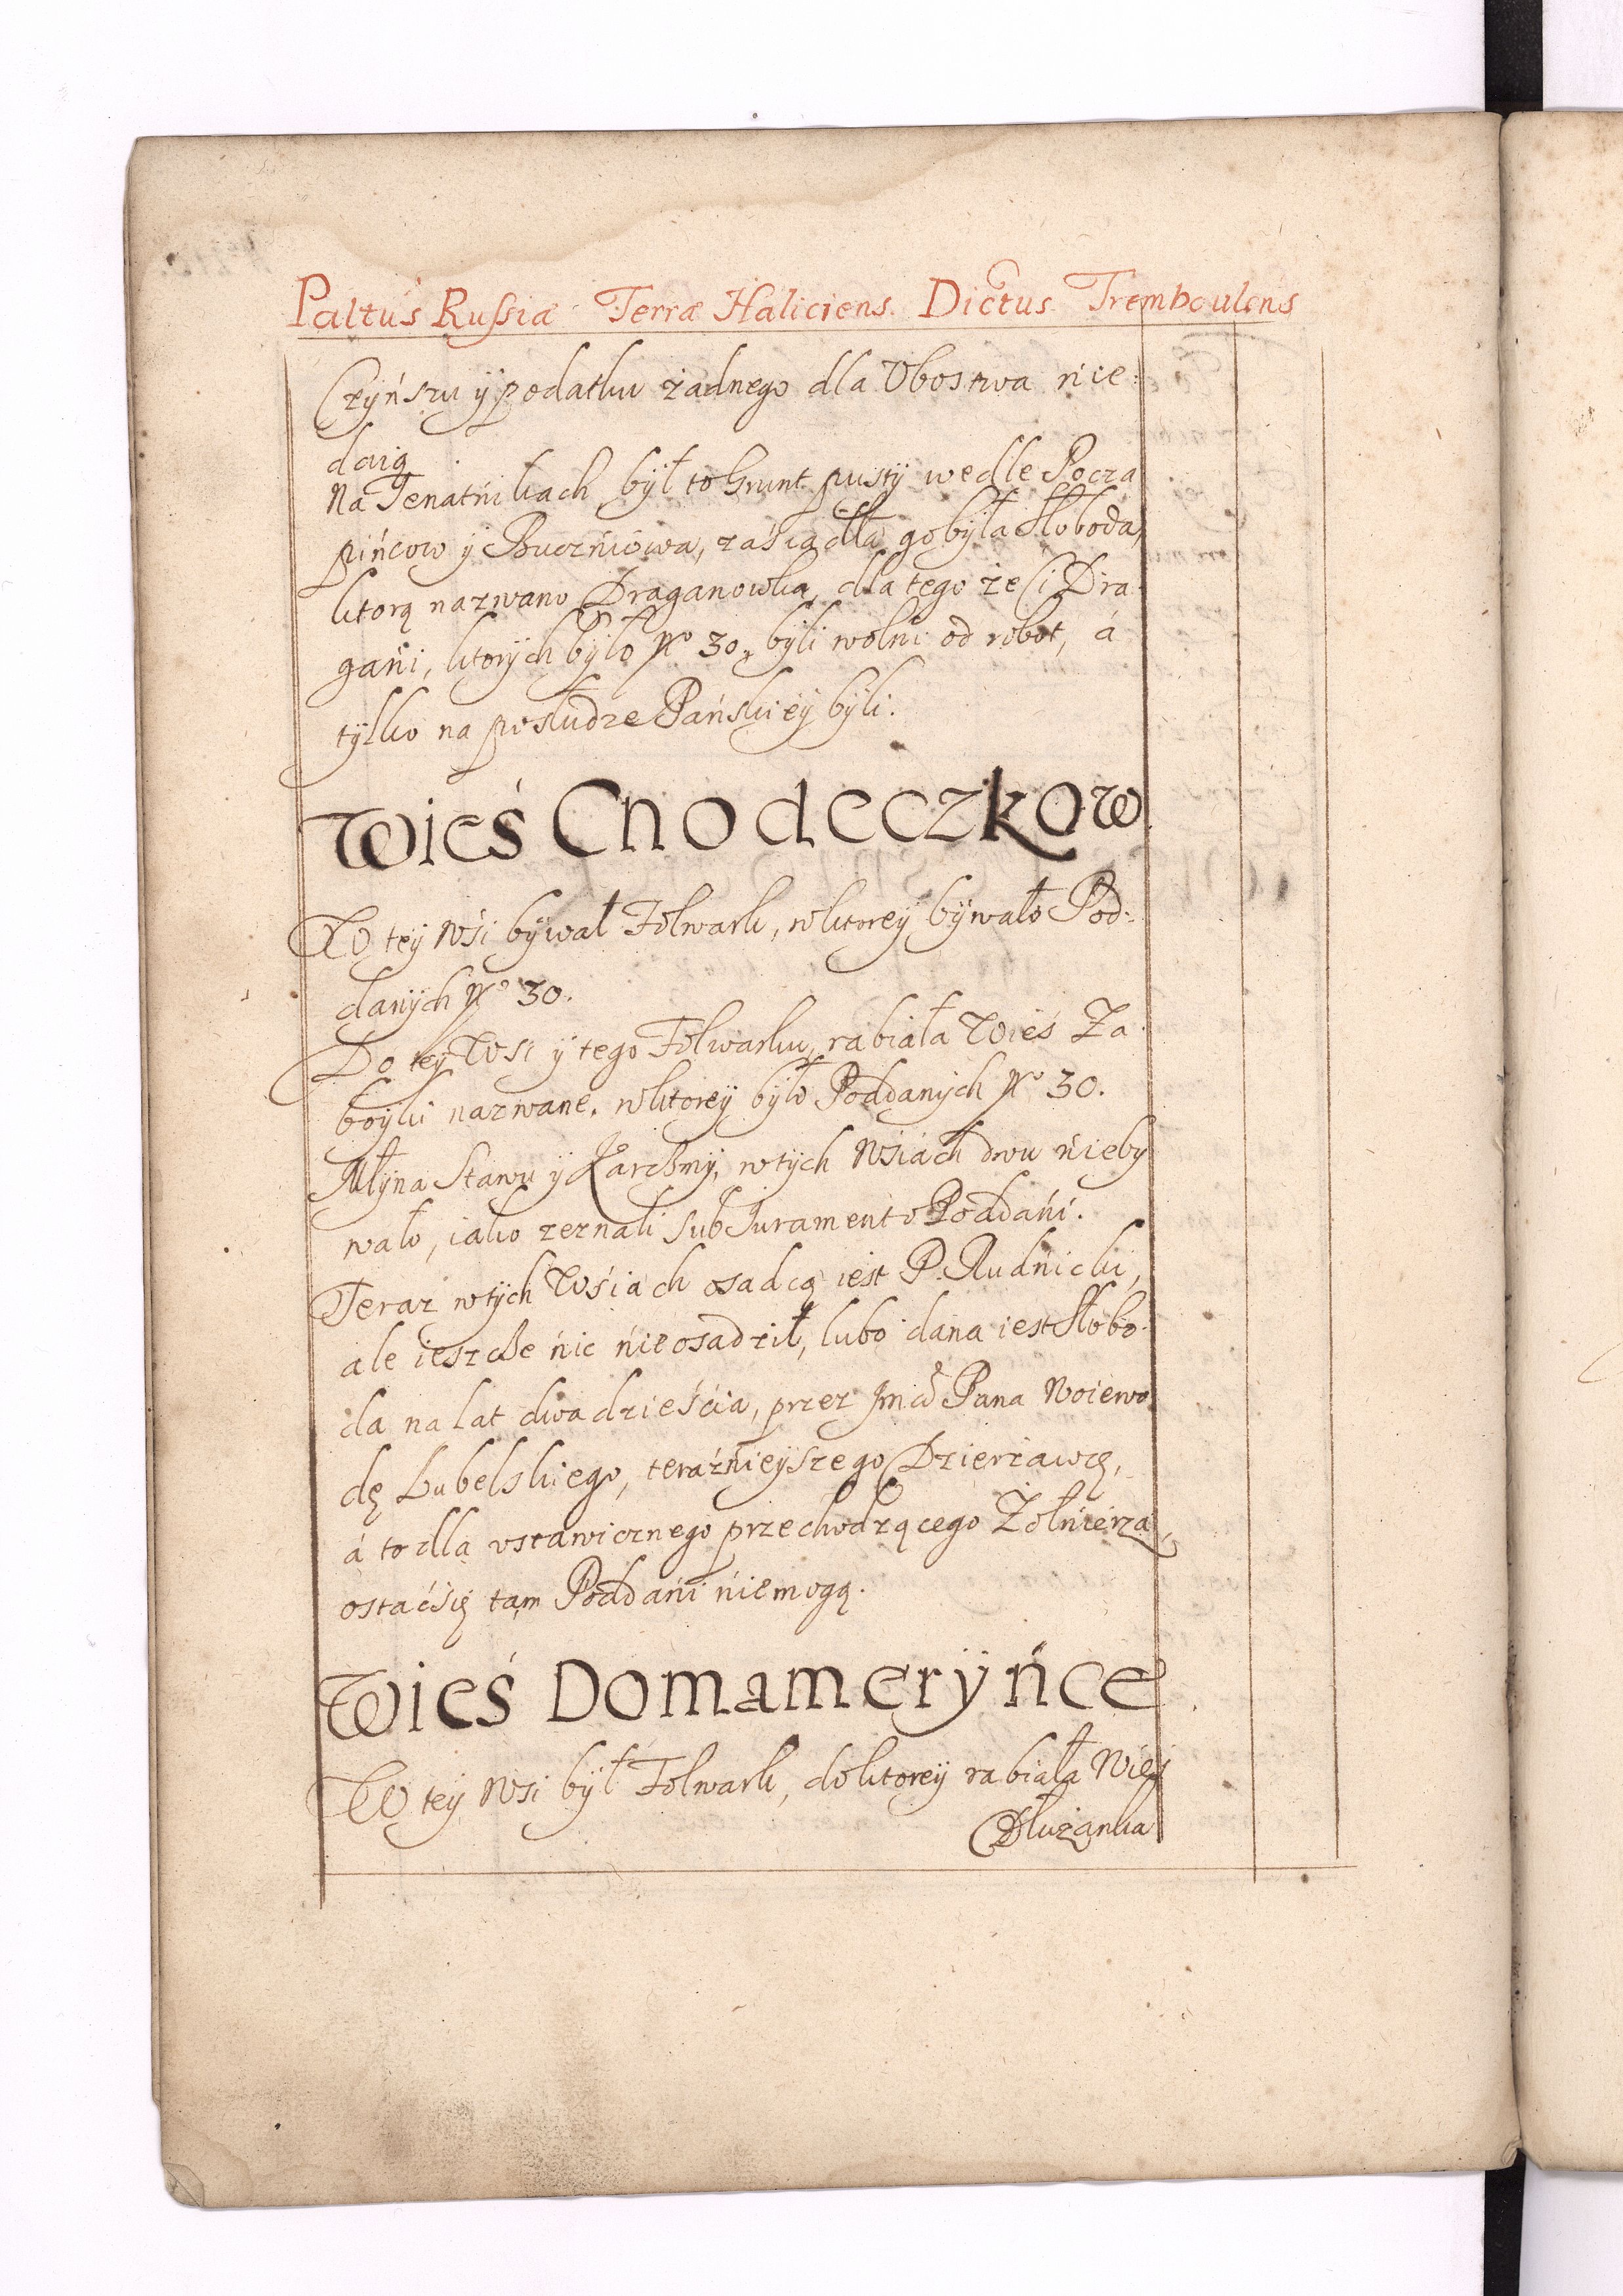 Paltus Russiæ Terræ Haliciens. Dictus Tremboulens
Czyńszu ÿ podatku żadnego dla Ubostwa nie:
daią
Na Jenatńikach bÿł to Grunt pustÿ wedle Pocza
pińcow ÿ Buczńiowa, zaśiadła go bÿła Słoboda,
ktorą nazwano Draganowka, dla tego że Ci Dra
gańi, ktorÿch bÿło No 30, bÿli wolni od robot, á
tÿlko na posłudze Pańskieÿ bÿli.
Wieś Chodeczkow
W teÿ Wśi bÿwał Folwark, w ktoreÿ bÿwało Pod:
danÿch No 30.
Do teÿ Wsi ÿ tego Folwarku, rabiała Wieś Za
boÿki nazwane. w ktoreÿ bÿło Poddanÿch No 30.
Młÿna Stawu ÿ Karczmÿ, w tÿch Wśiach dwu ńiebÿ
wało, iako zeznali sub Juramento Poddáńi.
Teraz w tÿch Wśiach osadcą iest P. Rudńicki,
ale ieszcze ńic ńieosadził, lubo dana iest Słobo:
da na lat dwadzieśćia, przez Jmći Pana Woiewo
dę Lubelskiego, teráźńieÿszego Dzierżawcę,
á to dla ustawicznego przechodzącego Żołńierza,
ostáćśię tam Poddáńi ńiemogą.
Wieś Domamerÿńce
W teÿ Wsi bÿł Folwark, do ktoreÿ rabiała Wieś
Dłużanka